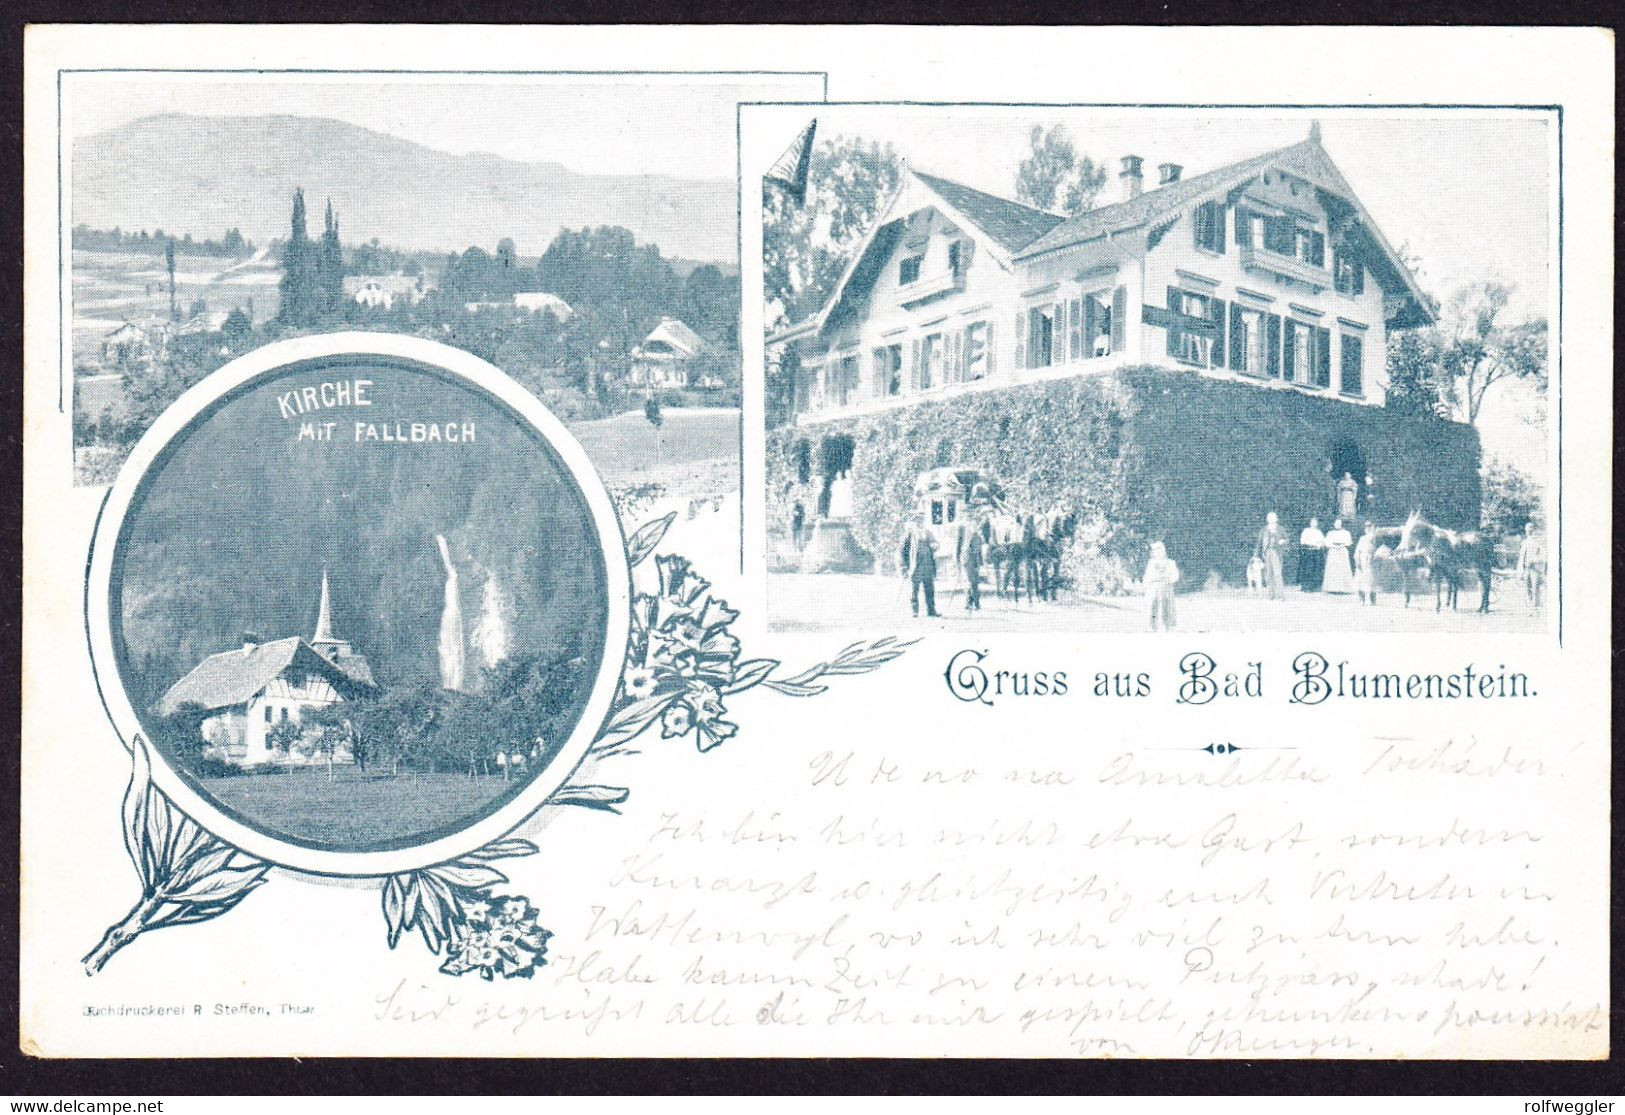 KIRCHE
MIT FALLBACH
Gruss aus Bad Blumenstein.
U de no na
Ich bin hier nicht etwa Gast, sondern
Kurarzt u. gleichzeitig auch Vertreter in
Wattenwyl, wo ich sehr viel zu tun habe.
Habe kaum Zeit zu einem schade!
Seid gegrüsst alle die Ihr mir gespielt,
von
Buchdruckerei R Steffen, Thun
www.delcampe.net
rolfweggler